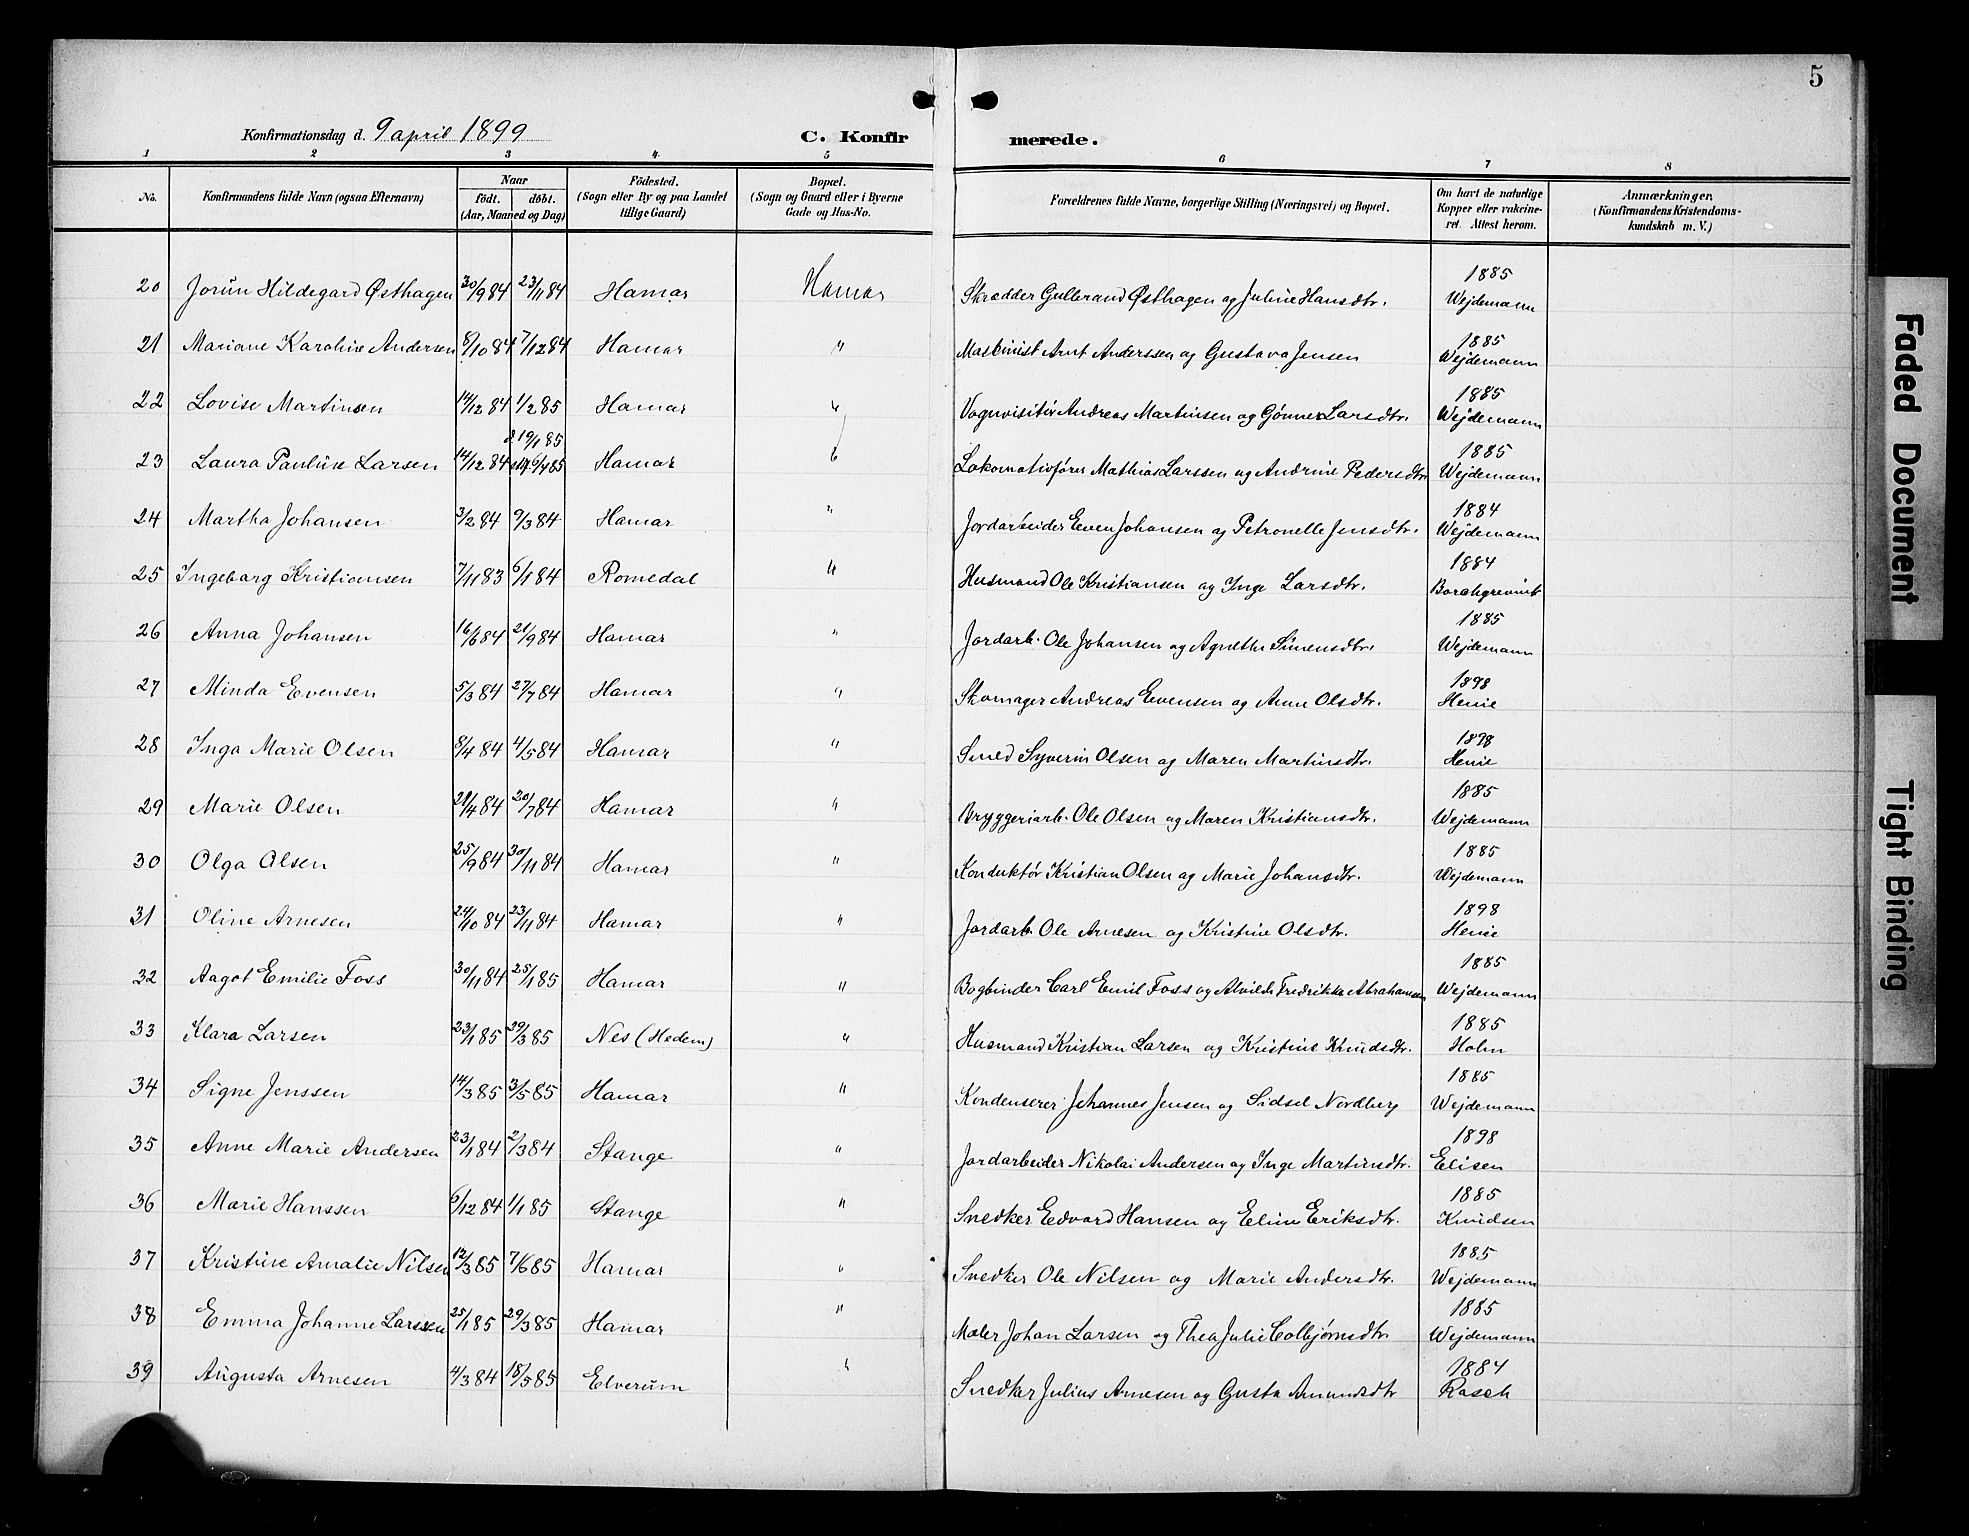 5
Konfirmationsdag d. 9 april 1899
C. Konfirmerede.
1 2 3 4 5 6 7 8
No. Konfirmandens fulde Navn (ogsaa Efternavn) Naar født. døbt. (Aar, Maaned og Dag) Fødested. (Sogn eller By og paa Landet tillige Gaard) Bopæl. (Sogn og Gaard eller i Byerne Gade og Hus-No. Forældrenes fulde Navne, borgerlige Stilling (Næringsvei) og Bopæl. Om havt de naturlige Kopper eller vakcineret. Attest herom. Anmærkninger. (Konfirmandens Kristendomskundskab m. V.)
20 Jorun Hildegard Østhagen 30/9 84 23/11 84 Hamar Hamar Skrædder Gulbrand Østhagen og Juline Hansdtr. 1885 Wejdemann
21 Mariane Karoline Andersen 8/10 84 7/12 84 Hamar " Maskinist Arnt Anderssen og Gustava Jensen 1885 Wejdemann
22 Lovise Martinsen 14/12 84 1/2 85 Hamar " Vognvisitør Andreas Martinsen og Gønner Larsdtr. 1885 Wejdemann
23 Laura Pauline Larsen 14/12 84 d. 19/1 85 6/4 85 Hamar " Lokomotivfører Mathias Larssen og Andrine Pedersdtr 1885 Wejdemann
24 Martha Johansen 3/2 84 9/3 84 Hamar " Jordarbeider Even Johansen og Petronelle Jensdtr. 1884 Wejdemann
25 Ingeborg Kristiansen 7/11 83 6/1 84 Romedal " Husmand Ole Kristiansen og Inge Larsdtr. 1884 Borchgrevink
26 Anna Johansen 16/6 84 21/9 84 Hamar " Jordarb. Ole Johansen og Agnethe Simensdtr. 1885 Wejdemann
27 Minda Evensen 5/3 84 27/7 84 Hamar " Skomager Andreas Evensen og Anne Olsdtr. 1898 Henie
28 Inga Marie Olsen 8/4 84 4/5 84 Hamar " Smed Syverin Olsen og Maren Martinsdtr. 1898 Henie
29 Marie Olsen 28/4 84 20/7 84 Hamar " Bryggeriarb. Ole Olsen og Maren Kristiansdtr. 1885 Wejdemann
30 Olga Olsen 25/9 84 30/11 84 Hamar " Konduktør Kristian Olsen og Marie Johansdtr. 1885 Wejdemann
31 Oline Arnesen 24/10 84 23/11 84 Hamar " Jordarb. Ole Arnesen og Kristine Olsdtr. 1898 Henie
32 Aagot Emilie Foss 30/11 84 25/1 85 Hamar " Bogbinder Carl Emil Foss og Alvilde Fredrikke Abrahamsen 1885 Wejdemann
33 Klara Larsen 23/1 85 29/3 85 Nes (Hedem) " Husmand Kristian Larsen og Kristine Knudsdtr. 1885 Holm
34 Signe Jenssen 14/3 85 3/5 85 Hamar " Kondenserer Johannes Jensen og Sidsel Nordberg 1885 Wejdemann
35 Anne Marie Andersen 23/1 84 2/3 84 Stange " Jordarbeider Nikolai Andersen og Inge Martinsdtr. 1898 Elisen
36 Marie Hanssen 6/12 84 1/1 85 Stange " Snedker Edvard Hansen og Eline Eriksdtr. 1885 Knudsen
37 Kristine Amalie Nilsen 12/3 85 7/6 85 Hamar " Snedker Ole Nilsen og Marie Andersdtr. 1885 Wejdemann
38 Emma Johanne Larssen 25/1 85 29/3 85 Hamar " Maler Johan Larsen og Thea Julie Colbjørnsdtr 1885 Wejdemann
39 Augusta Arnesen 4/3 84 18/5 85 Elverum " Snedker Julius Arnesen og Gusta Amundsdtr 1884 Rasch
Faded Document
Tight Binding